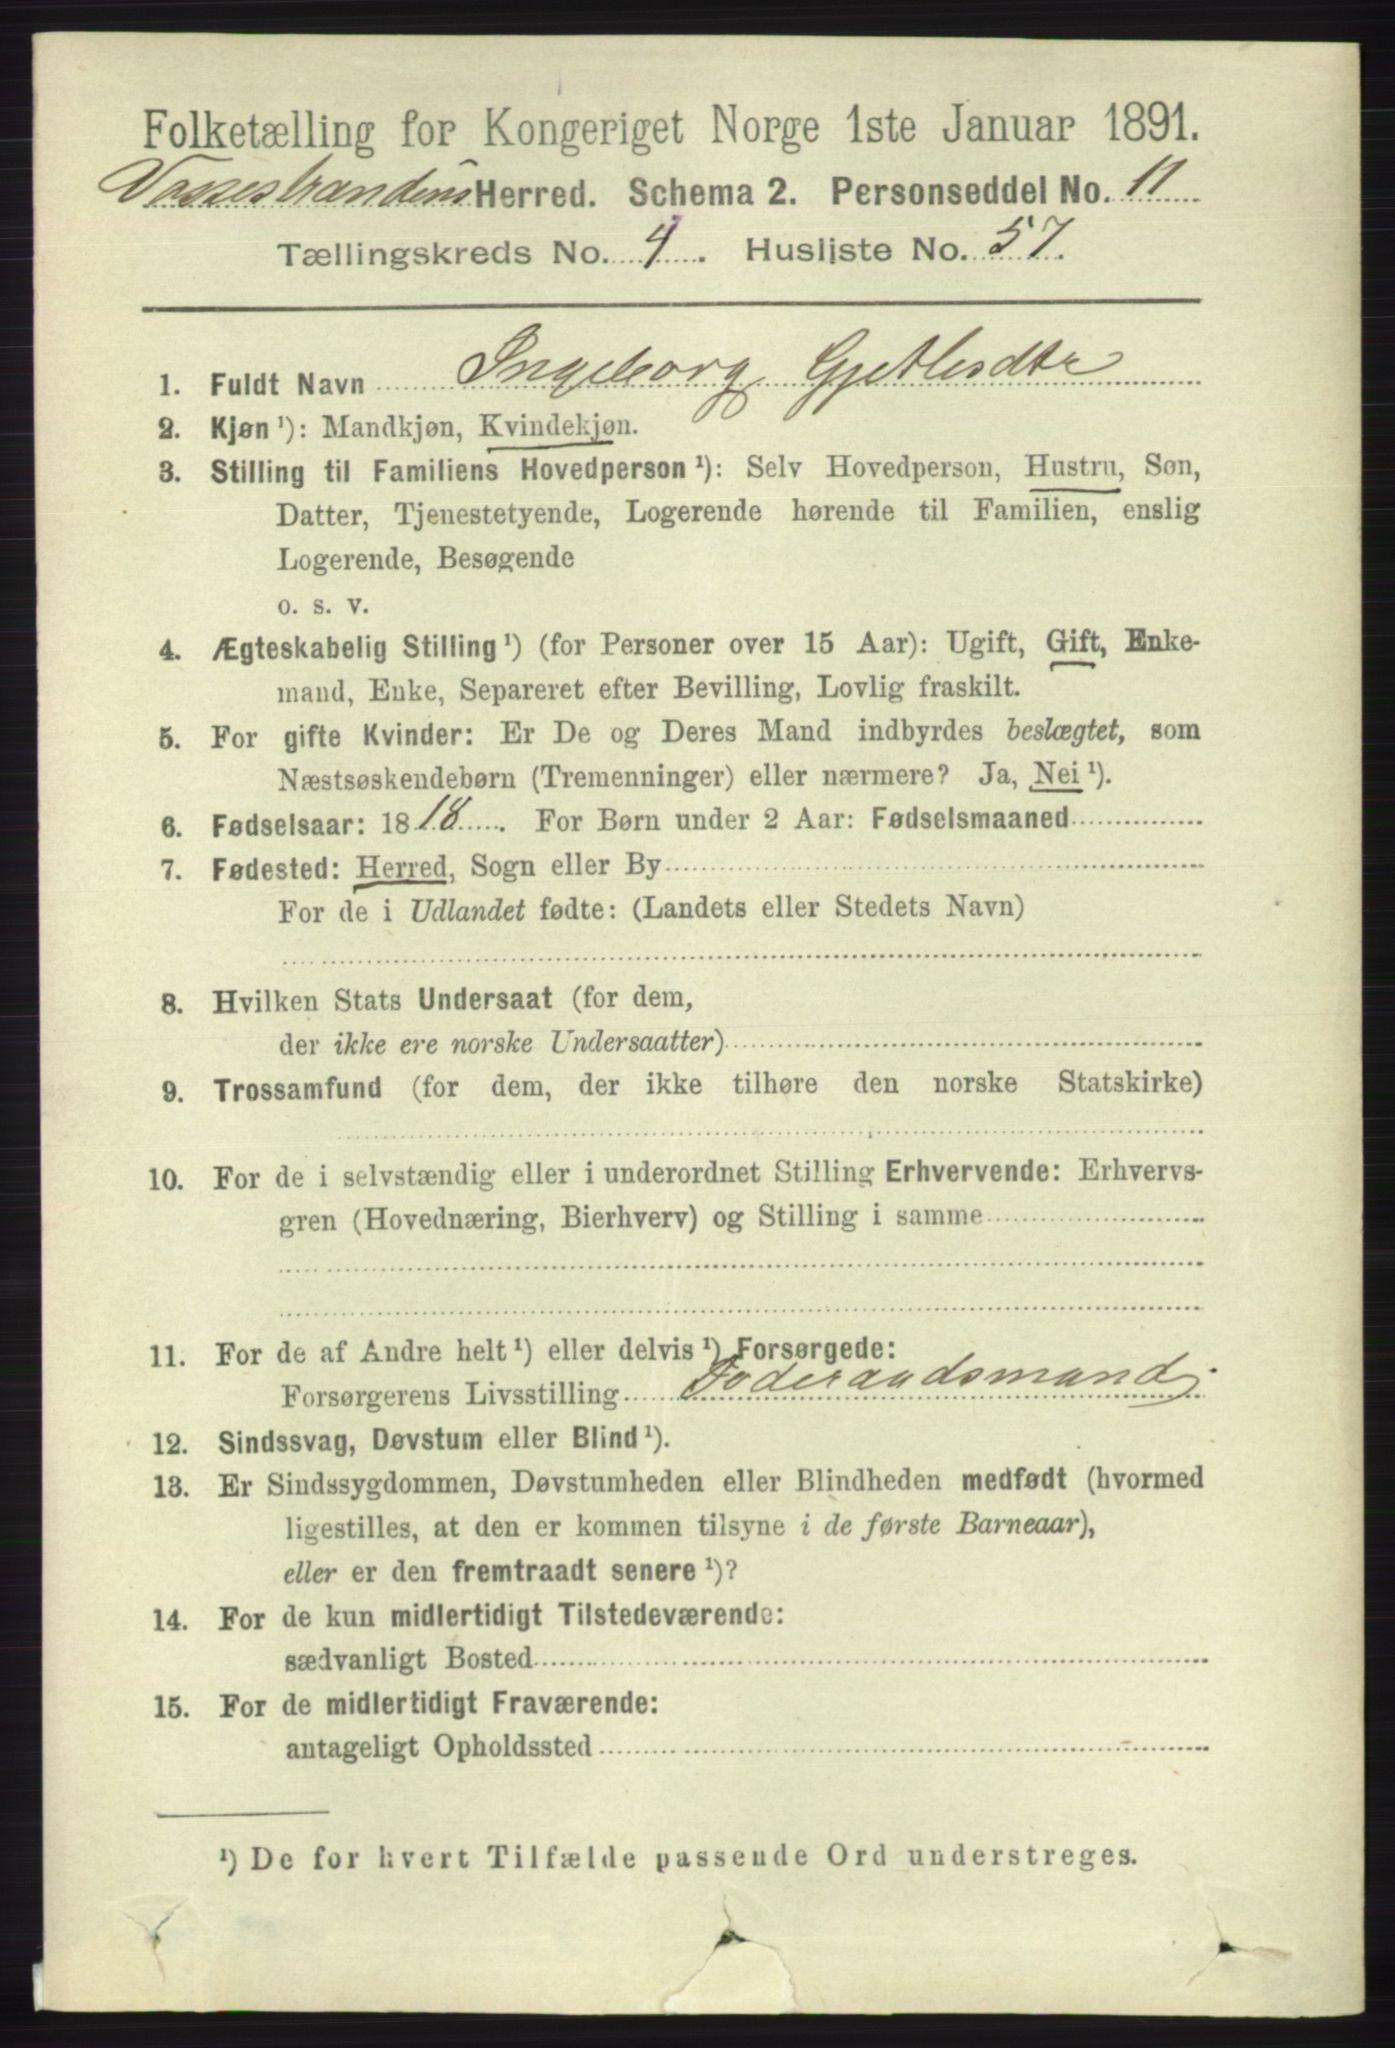 Folketælling for Kongeriget Norge 1ste Januar 1891.
Vossestrandens Herred. Schema 2. Personseddel No. 11
Tællingskreds No. 4. Husliste No. 57.
1. Fuldt Navn Ingeborg Gjetlesdtr
2. Kjøn ¹): Mandkjøn, Kvindekjøn.
3. Stilling til Familiens Hovedperson ¹): Selv Hovedperson, Hustru, Søn,
Datter, Tjenestetyende, Logerende hørende til Familien, enslig
Logerende, Besøgende
o. s. v.
4. Ægteskabelig Stilling ¹) (for Personer over 15 Aar): Ugift, Gift, Enke-
mand, Enke, Separeret efter Bevilling, Lovlig fraskilt.
5. For gifte Kvinder: Er De og Deres Mand indbyrdes beslægtet, som
Næstsøskendebørn (Tremenninger) eller nærmere? Ja, Nei ¹).
6. Fødselsaar: 1818. For Børn under 2 Aar: Fødselsmaaned
7. Fødested: Herred, Sogn eller By
For de i Udlandet fødte: (Landets eller Stedets Navn)
8. Hvilken Stats Undersaat (for dem,
der ikke ere norske Undersaatter)
9. Trossamfund (for dem, der ikke tilhøre den norske Statskirke)
10. For de i selvstændig eller i underordnet Stilling Erhvervende: Erhvervs-
gren (Hovednæring, Bierhverv) og Stilling i samme
11. For de af Andre helt ¹) eller delvis ¹) Forsørgede:
Forsørgerens Livsstilling Foderaadsmand.
12. Sindssvag, Døvstum eller Blind ¹).
13. Er Sindssygdommen, Døvstumheden eller Blindheden medfødt (hvormed
ligestilles, at den er kommen tilsyne i de første Barneaar),
eller er den fremtraadt senere ¹)?
14. For de kun midlertidigt Tilstedeværende:
sædvanligt Bosted
15. For de midlertidigt Fraværende:
antageligt Opholdssted
¹) De for hvert Tilfælde passende Ord understreges.